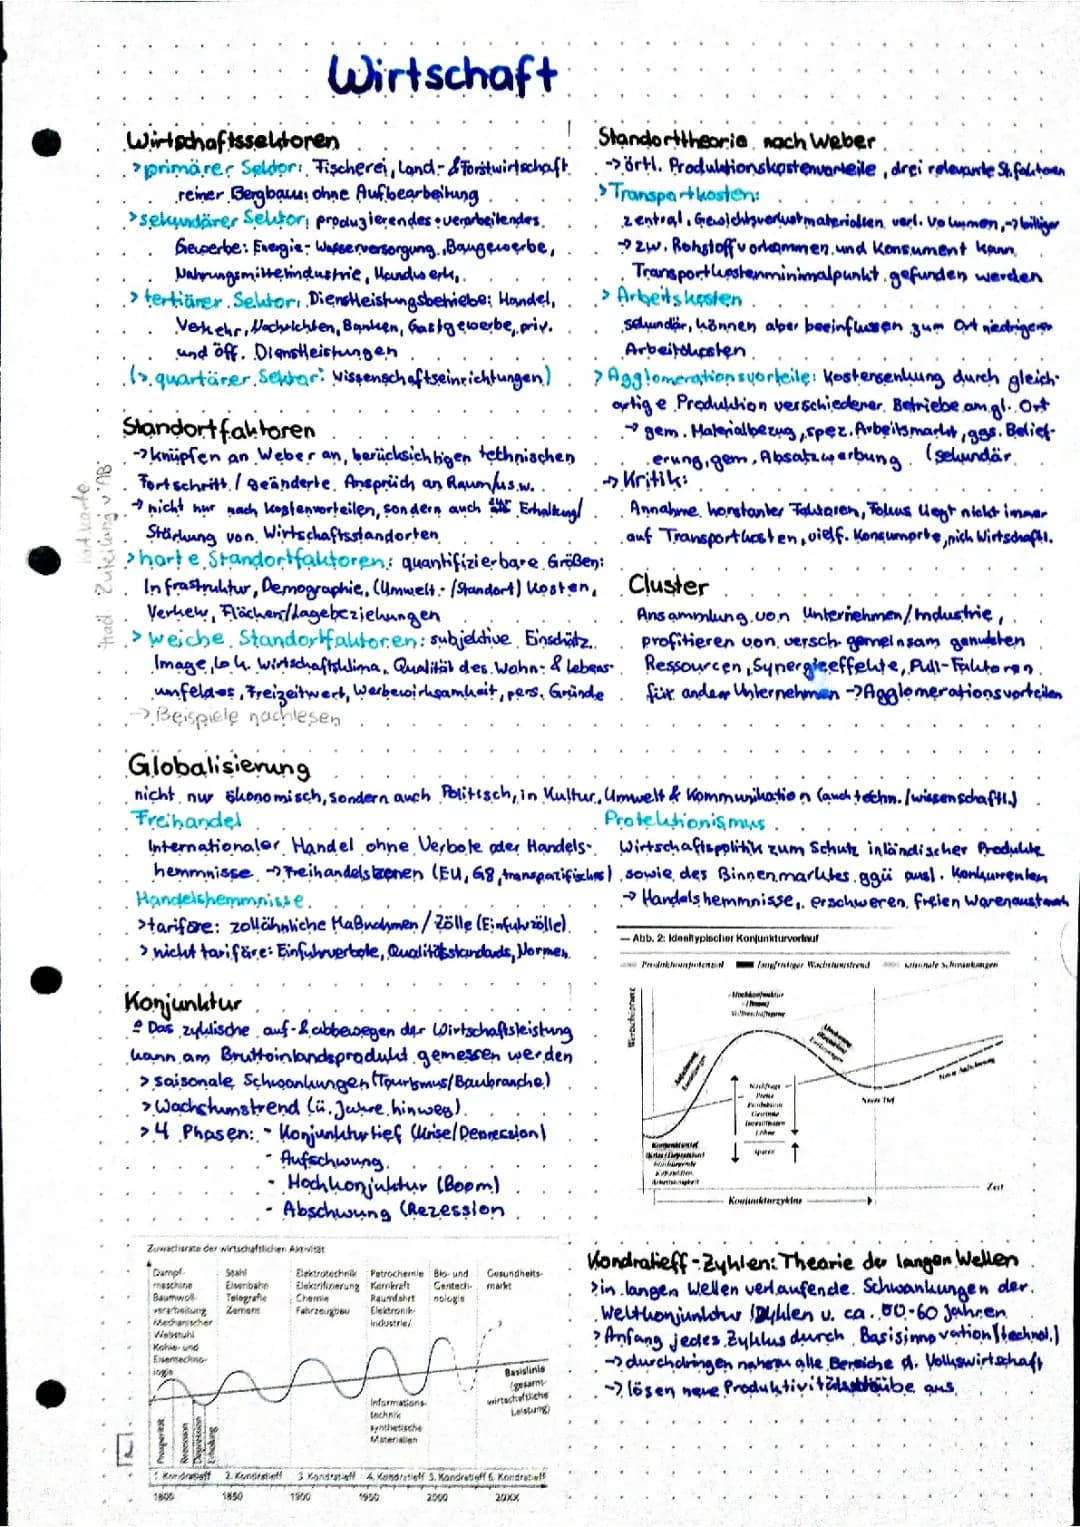 Wirtschaft
Wirtschaftssektoren
> primärer Sektor: Fischerei, Land- & Forstwirtschaft
reiner Bergbau; ohne Aufbearbeitung
> sekundärer Sektor; produzierendes + verarbeitendes
Gewerbe: Energie- Wasserversorgung, Baugewerbe,
Nahrungsmittelindustrie, Handwerk,
> tertiärer Sektor: Dienstleistungsbetriebe: Handel,
Verkehr, Nachrichten, Banken, Gastgewerbe, priv.
und öff. Dienstleistungen
(> quartärer Sektor: Wissenschaftseinrichtungen)
Standortfaktoren
-> knüpfen an Weber an, berücksichtigen technischen
Fortschritt / geänderte Ansprüch an Raum/us.w.
-> nicht nur nach Kostenvorteilen, sondern auch Erhaltung/
Stärkung von Wirtschaftsstandorten
> harte Standortfaktoren: quantifizierbare Größen:
Infrastruktur, Demographie, (Umwelt- /Standort) Kosten,
Verkehr, Flächen/Lagebeziehungen
> weiche Standortfaktoren: subjektive Einschätz.
Image, lok. Wirtschaftsklima, Qualität des Wohn- & Lebens-
umfeldes, Freizeitwert, Werbewirksamkeit, pers. Gründe
-> Beispiele nachlesen
Standorttheorie nach Weber
-> örtl. Produktionskostenvorteile, drei relevante St.faktoren
> Transportkosten:
zentral, Gewichtsverlustmaterialien verl. Volumen, -> billiger
-> zw. Rohstoffvorkommen und Konsument kann
Transportkostenminimalpunkt gefunden werden
> Arbeitskosten
sekundär, können aber beeinflussen zum Ort niedrigerer
Arbeitskosten
> Agglomerationsvorteile: Kostensenkung durch gleich-
artige Produktion verschiedener Betriebe am gl. Ort
-> gem. Materialbezug, spez. Arbeitsmarkt, ggs. Belief-
erung, gem. Absatzwerbung (sekundär
-> Kritik:
Annahme konstanter Faktoren, Fokus liegt nicht immer
auf Transportkosten, vielf. Konsumorte, nich Wirtschaftl.
Cluster
Ansammlung von Unternehmen/Industrie,
profitieren von versch gemeinsam genutzten
Ressourcen, Synergieeffekte, Pull-Faktoren
für andere Unternehmen -> Agglomerationsvorteilen
Globalisierung
nicht nur ökonomisch, sondern auch Politisch, in Kultur, Umwelt & Kommunikation (auch techn./wissenschaftl.)
Freihandel
Internationaler Handel ohne Verbote oder Handels-
hemmnisse -> Freihandelszonen (EU, G8, transpazifisches)
Handelshemmnisse
> tarifäre: zollähnliche Maßnahmen / Zölle (Einfuhrzölle)
> nicht tarifäre: Einfuhrverbote, Qualitätsstandards, Normen
Protektionismus
Wirtschaftspolitik zum Schutz inländischer Produkte
sowie des Binnenmarktes ggü ausl. Konkurrenten
-> Handelshemmnisse, erschweren freien Warenaustausch
Konjunktur
≙ Das zyklische auf- & abbewegen der Wirtschaftsleistung
kann am Bruttoinlandsprodukt gemessen werden
> saisonale Schwankungen (Tourismus/Baubranche)
> Wachstumstrend (ü. Jahre hinweg)
> 4 Phasen: - Konjunkturtief (Krise/Depression)
- Aufschwung
- Hochkonjuktur (Boom)
- Abschwung (Rezession
Abb. 2: Idealtypischer Konjunkturverlauf
Produktionspotenzial langfristiger Wachstumstrend saisonale Schwankungen
Hochkonjunktur
(Boom)
Nachfrage
Preise
Produktion
Gewinne
Investitionen
Löhne
Sparen
Neues Tief
Neuer Aufschwung
Konjunkturtief
Zeit
Konjunkturzyklus
Zuwachsrate der wirtschaftlichen Aktivität
Dampf-
maschine
Baumwoll-
verarbeitung
Mechanischer
Webstuhl
Kohle- und
Eisentechno-
logie
Stahl
Eisenbahn
Telegrafie
Zement
Elektrotechnik
Elektrifizierung
Chemie
Fahrzeugbau
Petrochemie
Kernkraft
Raumfahrt
Elektronik-
industrie/
Informations-
technik
synthetische
Materialien
Bio- und
Gentech-
nologie
Gesundheits-
markt
Basislinie
(gesamt-
wirtschaftliche
Leistung)
Prosperität
Rezession
Depression
Erholung
1. Kondratieff 2. Kondratieff 3. Kondratieff 4. Kondratieff 5. Kondratieff 6. Kondratieff
1800 1850 1900 1950 2000 20XX
Kondratieff-Zyklen: Theorie der langen Wellen
> in langen Wellen verlaufende Schwankungen der
Weltkonjunktur (Zyklen v. ca. 50-60 Jahren
> Anfang jedes Zyklus durch Basisinnovation (technol.)
-> durchdringen nahezu alle Bereiche d. Volkswirtschaft
-> lösen neue Produktivitätsschübe aus